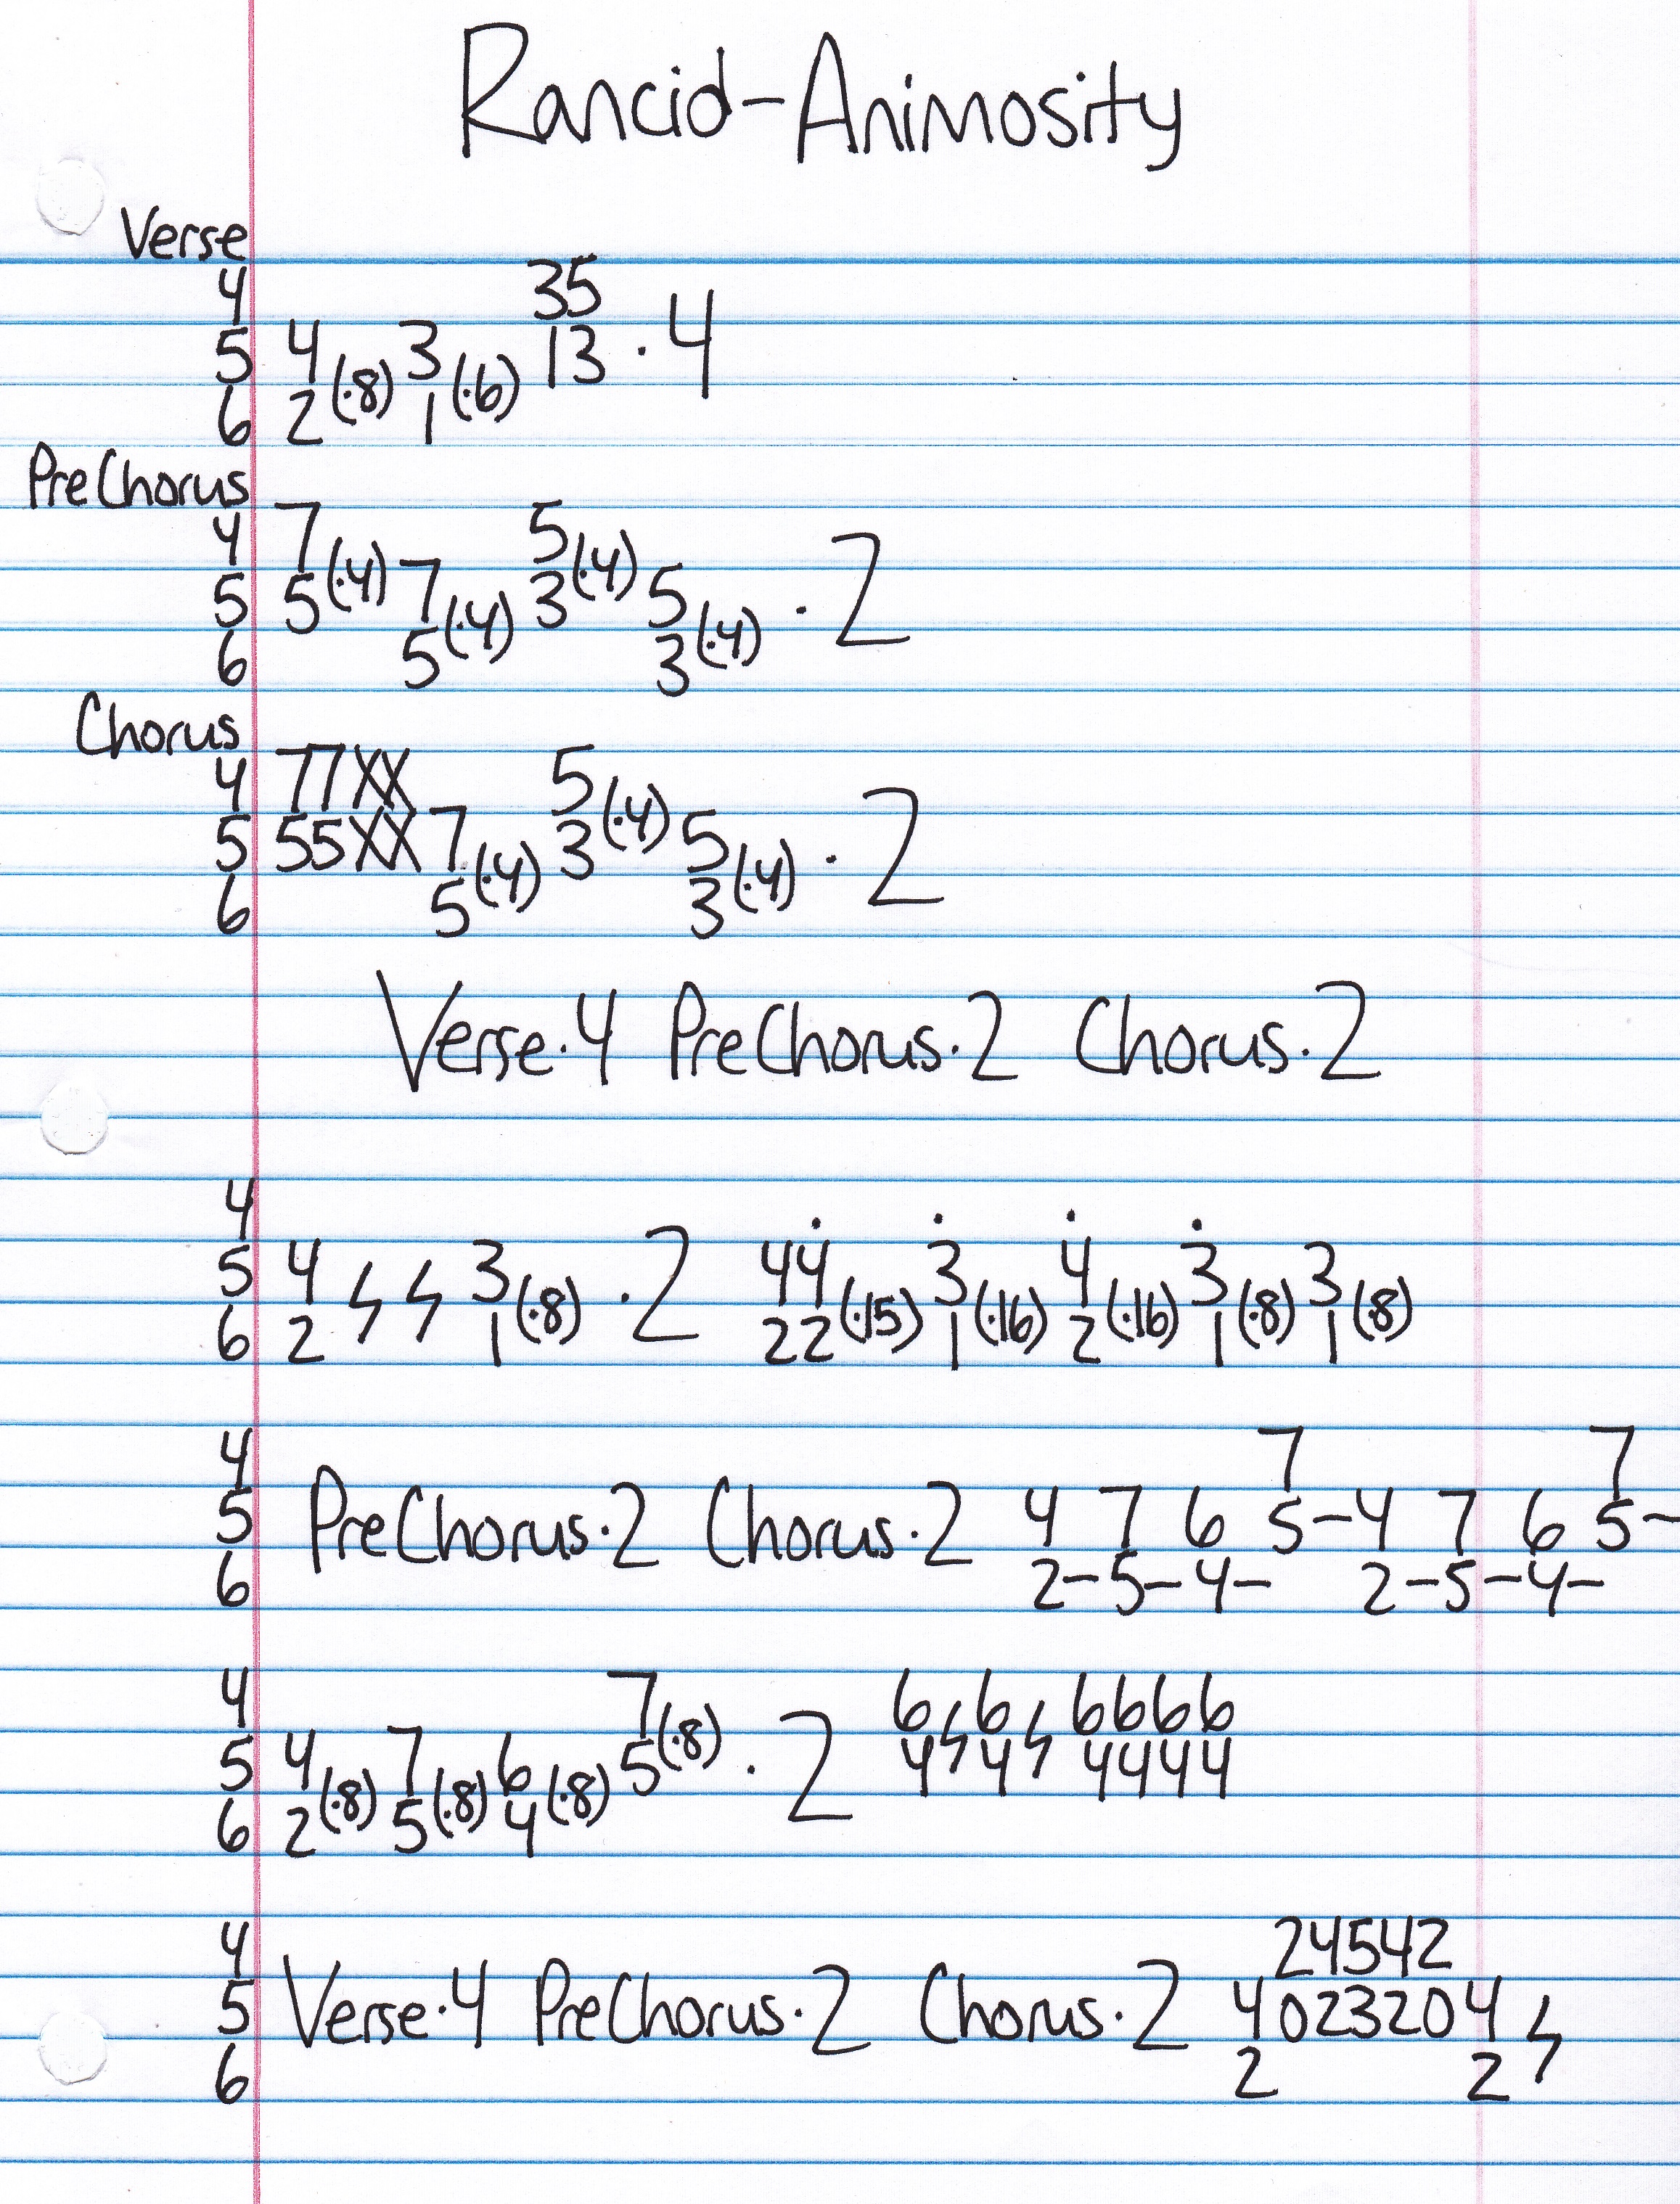 Rancid-Animosity
Verse
4 35
5 4 (·8) 3 (·6) 13 · 4
6 2 1
PreChorus
4 7 (·4) 5 (·4)
5 5 7 (·4) 3 5 (·4) · 2
6 5 3
Chorus
4 77XX 5 (·4)
5 55XX 7 (·4) 3 5 (·4) · 2
6 5 3
Verse·4 PreChorus·2 Chorus·2
4
5 4 ϟ ϟ 3 (·8) · 2 44̇ (·15) 3̇ (·16) 4̇ (·16) 3̇ (·8) 3 (·8)
6 2 1 22 1 2 1 1
4 7 7
5 PreChorus·2 Chorus·2 4 7 6 5-4 7 6 5-
6 2-5-4- 2-5-4-
4 7 (·8) 6 ϟ 6 ϟ 6666
5 4 (·8) 7 (·8) 6 (·8) 5 · 2 4 4 4444
6 2 5 4
4 24542
5 Verse·4 PreChorus·2 Chorus·2 4023204 ϟ
6 2 2